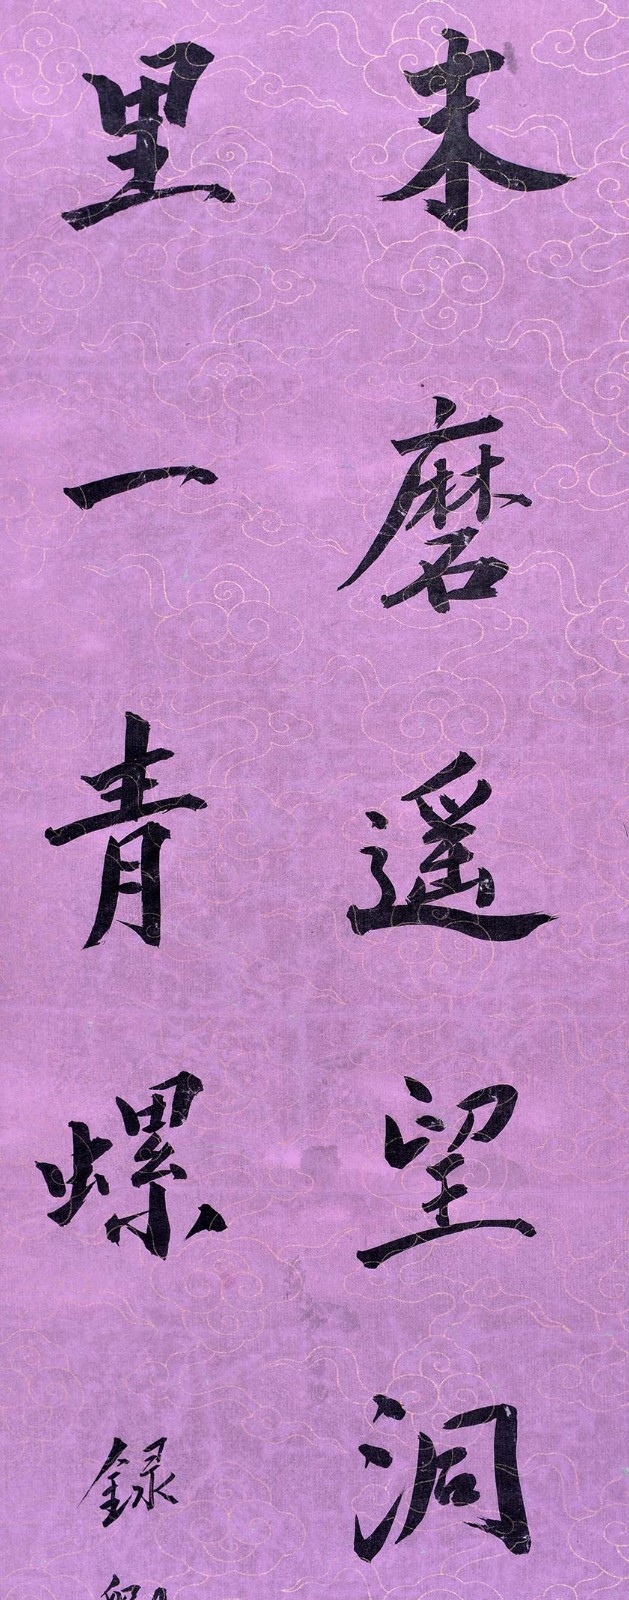 末磨遥望洞
里一青螺
録